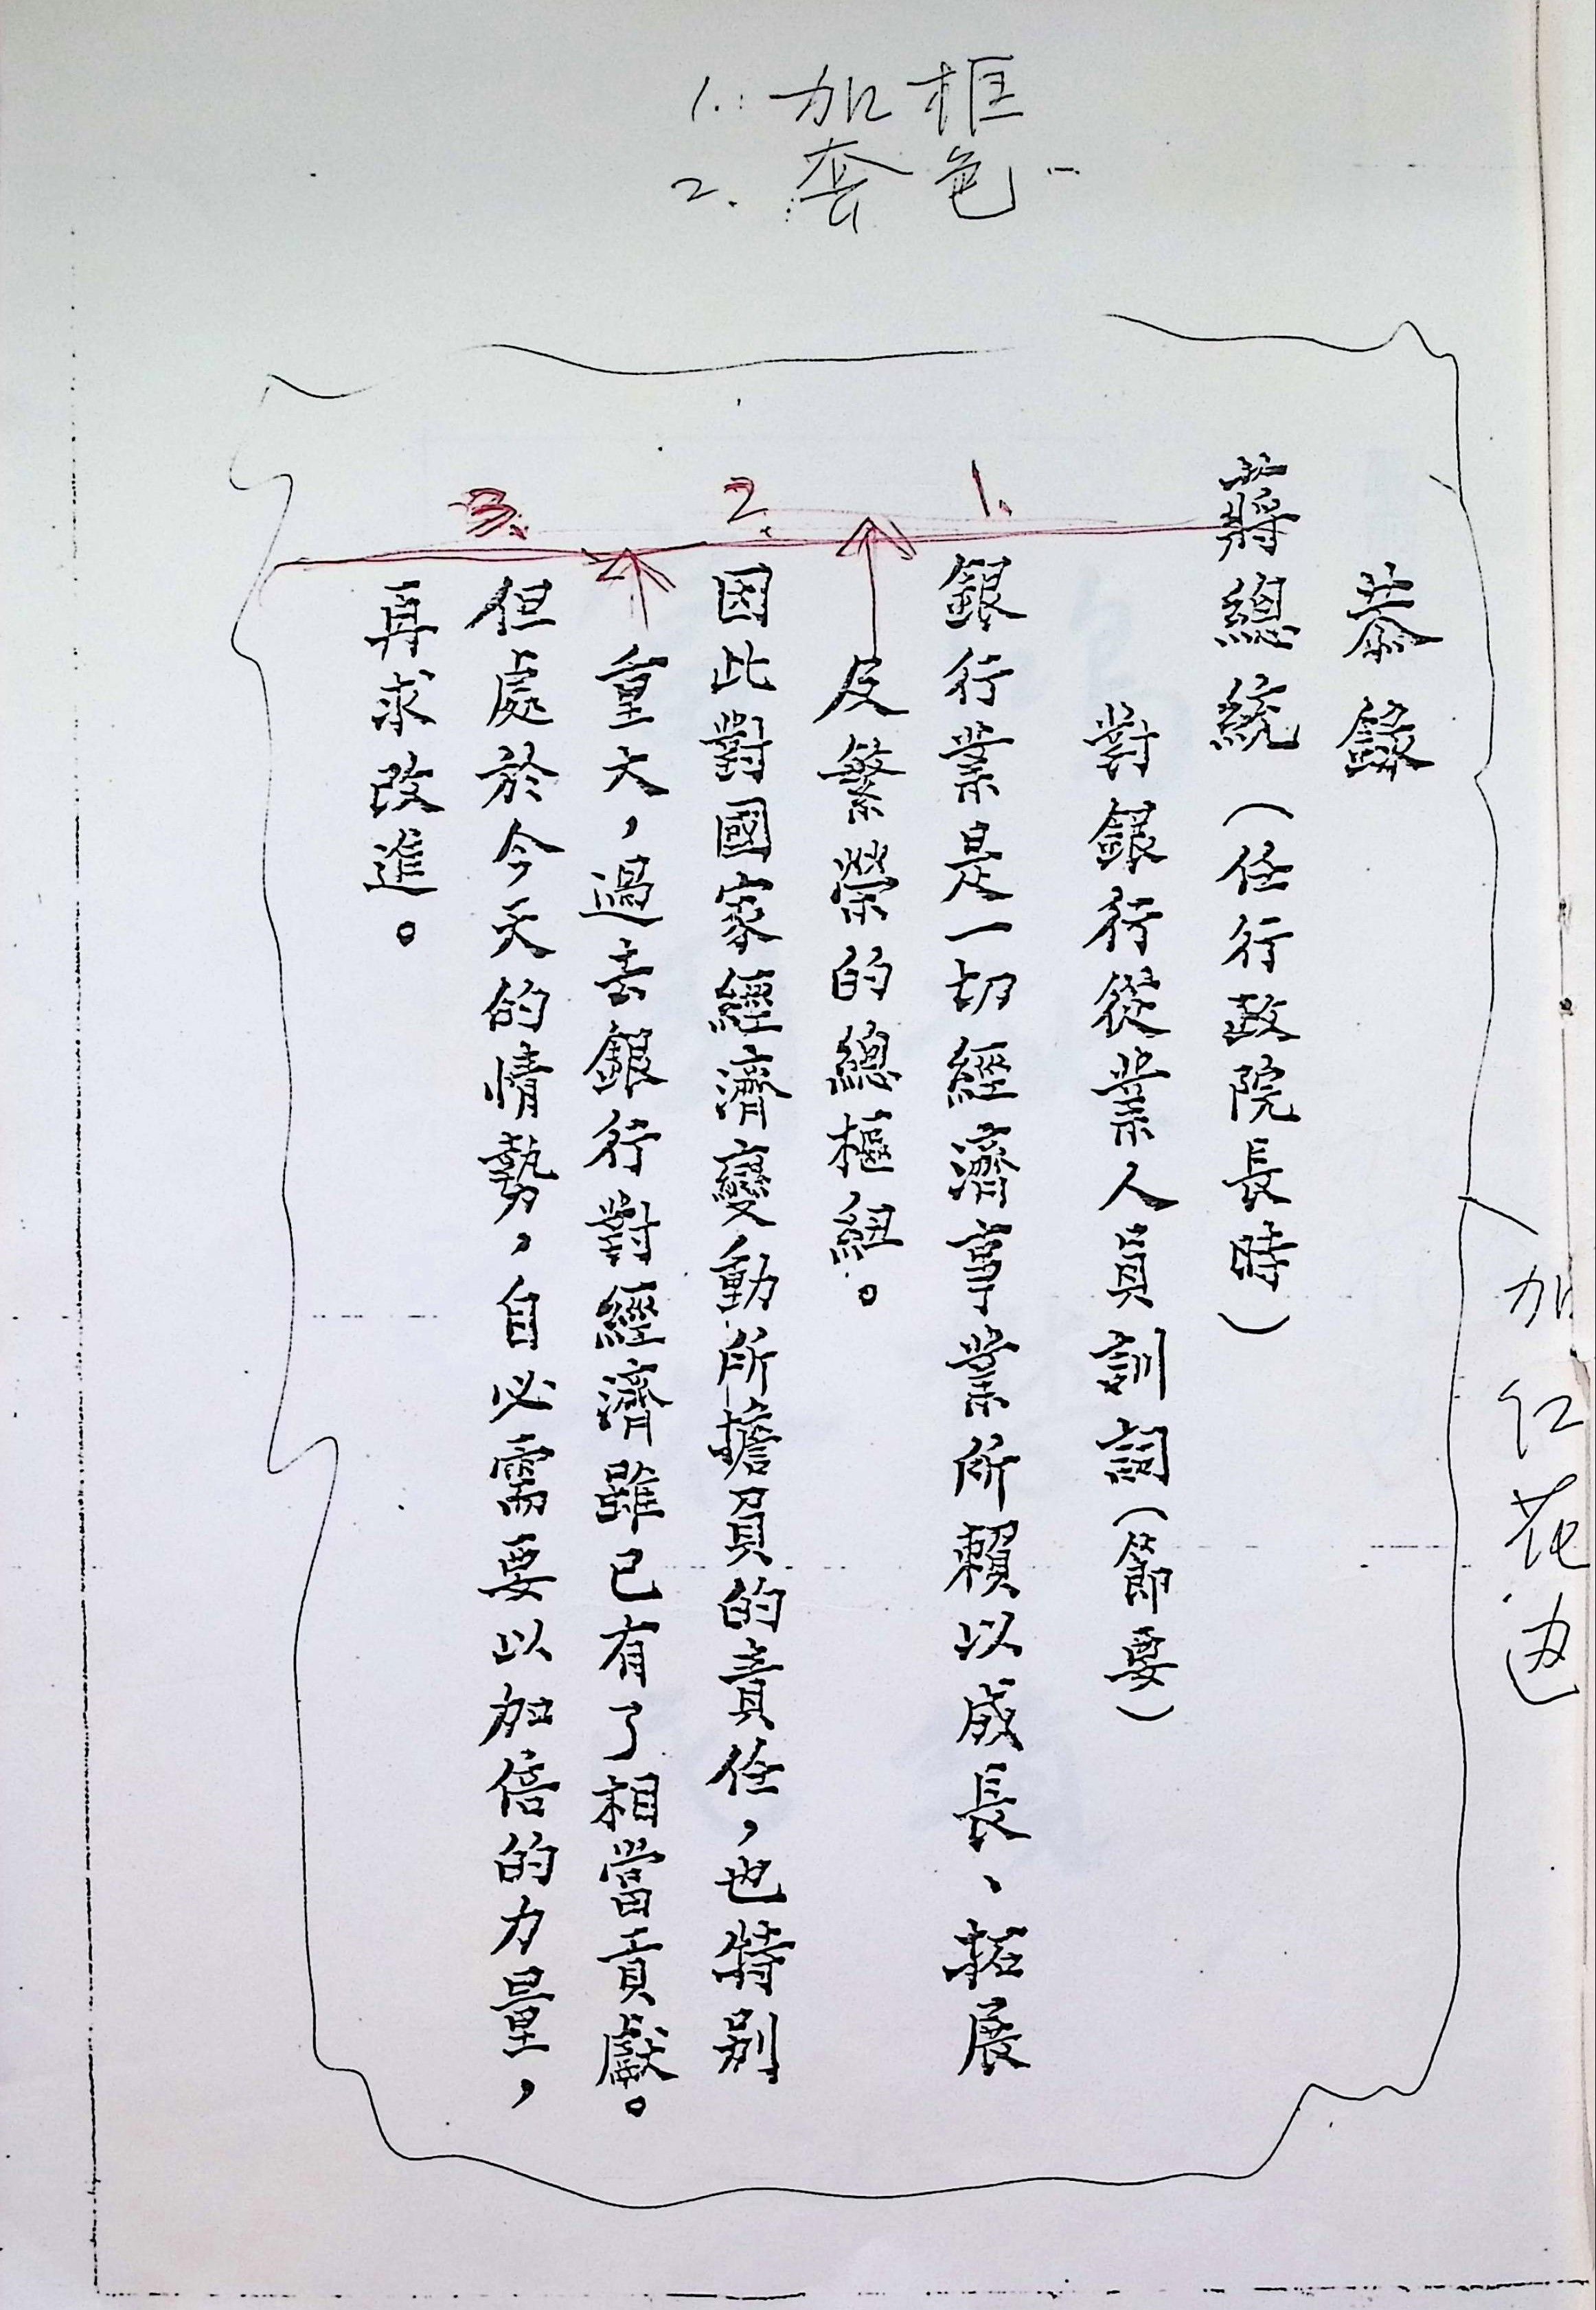 1. 加框
2. 套色
恭錄
蔣總統（任行政院長時）
對銀行從業人員訓詞（節要）
1.
銀行業是一切經濟事業所賴以成長、拓展
及繁榮的總樞紐。
2.
因此對國家經濟變動所擔負的責任，也特別
重大，過去銀行對經濟雖已有了相當貢獻。
3.
但處於今天的情勢，自必需要以加倍的力量，
再求改進。
加红花边